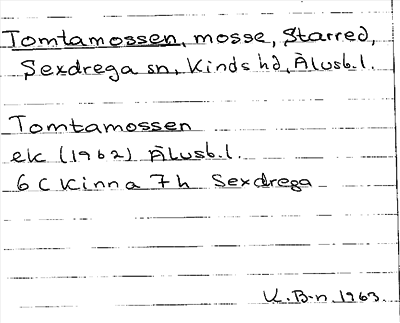 Tomtamossen, mosse, Starred,
Sexdrega sn, Kinds hd, Älvsb. l.
Tomtamossen
ek (1962) Älvsb. l.
6 C Kinna 7 h Sexdrega
K. B-n 1963